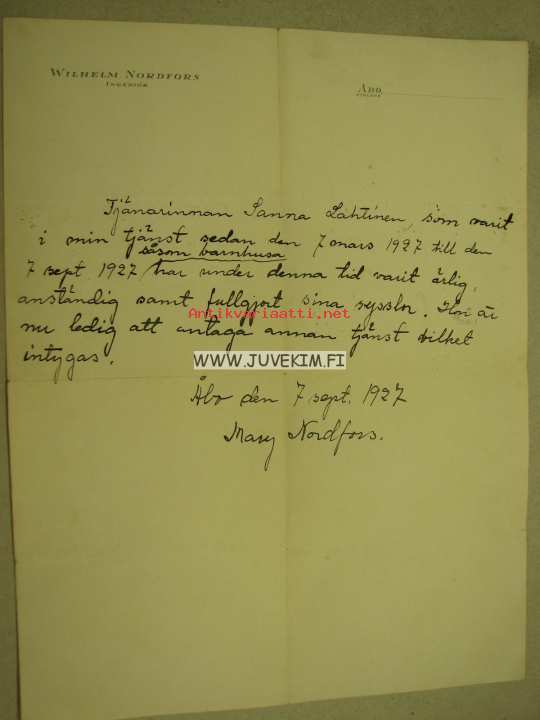 WILHELM NORDFORS
INGENIÖR
ÅBO
FINLAND
Tjänarinnan Sanna Lahtinen, som varit
i min tjänst sedan den 7 mars 1927 till den
såsom barnhusa
7 sept. 1927 har under denna tid varit ärlig,
anständig samt fullgjort sina sysslor. Hon är
Antikvariaatti.net
nu ledig att antaga annan tjänst vilket
intygas.
WWW.JUVEKIM.FI
Åbo den 7 sept. 1927
Mary Nordfors.